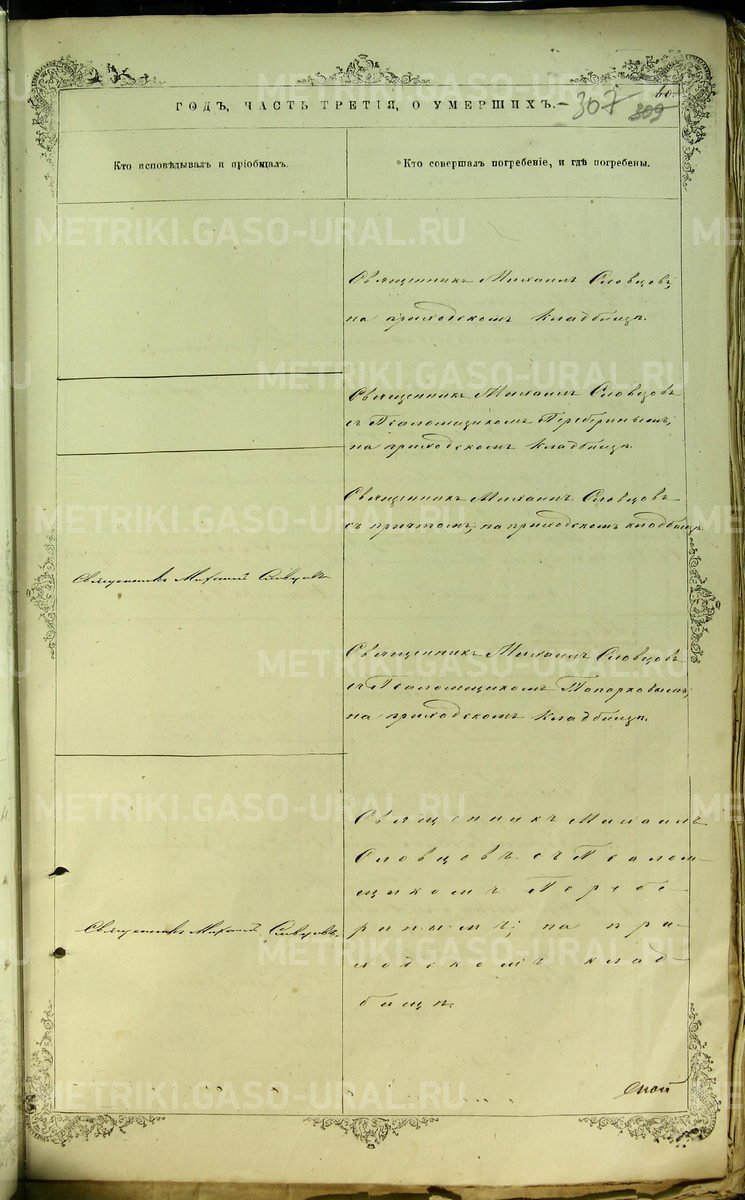 60.
ГОДЪ, ЧАСТЬ ТРЕТІЯ, О УМЕРШИХЪ.
307 309
Кто исповѣдывалъ и пріобщалъ.
Кто совершалъ погребеніе, и гдѣ погребены.
Священникъ Михаилъ Словцовъ;
на приходскомъ кладбищѣ.
Священникъ Михаилъ Словцовъ
съ Псаломщикомъ Переберинымъ;
на приходскомъ кладбищѣ.
Священникъ Михаилъ Словцовъ
съ причтомъ; на приходскомъ кладбищѣ
Священникъ Михаилъ Словцовъ
Священникъ Михаилъ Словцовъ
съ Псаломщикомъ Топорковымъ;
на приходскомъ кладбищѣ.
Священникъ Михаилъ
Словцовъ съ Псалом-
щикомъ Перебе-
Священникъ Михаилъ Словцовъ
ринымъ; на при-
ходскомъ клад-
бищѣ.
METRIKI.GASO-URAL.RU